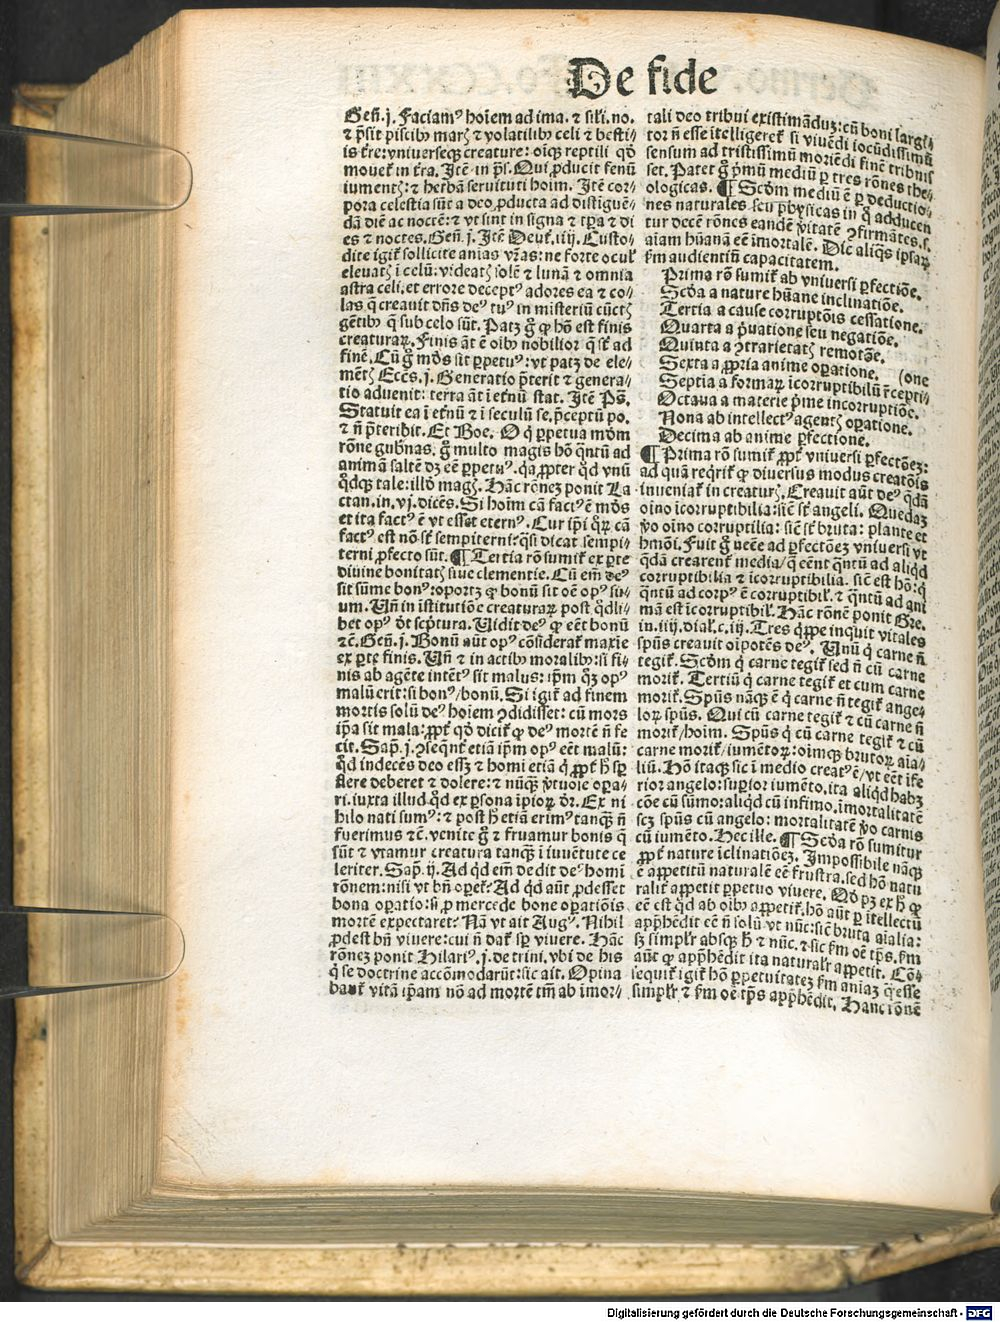 De fide
Geñ.j. Faciamꝰ hoiem ad ima. ⁊ sili. no.
⁊ p̄sit piscibꝰ marꝭ ⁊ volatilibꝰ celi ⁊ besti-
is t̄re: vniuerseqꝫ creature: oiqꝫ reptili qḋ
mouet̄ in t̄ra. Itē in p̄s. Qui ꝓducit fenū
iumentꝭ: ⁊ herbā seruituti hoim. Itē cor-
pora celestia sūt a deo ꝓducta ad distiguē-
dā diē ac noctē: ⁊ vt sint in signa ⁊ tp̄a ⁊ di
es ⁊ noctes. Geñ.j. Itē Deut̄.iiij. Custo-
dite igit̄ sollicite aniās vr̄as: ne forte ocul̄
eleuatꝭ i celū: videatꝭ solē ⁊ lunā ⁊ omnia
astra celi. et errore deceptꝰ adores ea ⁊ co-
las q̄ creauit dn̄s deꝰ tuꝰ in misteriū cūctꝭ
gētibꝰ q̄ sub celo sūt. Patꝫ g̊ ꝙ hō est finis
creaturaꝝ. Finis āt ē oībꝰ nobilior q̄ st̄ ad
finē. Cū g̊ mōs sit ꝑpetuꝰ: vt patꝫ de ele-
mētꝭ Eccs̄.j. Generatio p̄terit ⁊ genera-
tio aduenit: terra āt i et̄nū stat. Itē Ps̄.
Statuit ea i et̄nū ⁊ i seculū se. p̄ceptū po.
⁊ n̄ p̄teribit. Et Boe. O q̇ ꝑpetua mōm
rōne gub̄nas. g̊ multo magis hō q̄ntū ad
animā saltē dꝫ eē ꝑpetuꝰ. q̄a ꝓpter qḋ vnū
qḋqꝫ tale: illḋ magꝭ. Hāc rōneꝫ ponit La
ctan. in. vj. dicēs. Si hoim cā factꝰ ē mōs
et ita factꝰ ē vt esset eternꝰ. Cur ip̄i q̊ꝝ cā
factꝰ est nō st̄ sempiterni: q̄si dicat sempi-
terni ꝓfecto sūt. ¶ Tertia rō sumit̄ ex ꝑte
diuine bonitatꝭ siue clementie. Cū em̄ deꝰ
sit sūme bonꝰ: oportꝫ ꝙ bonū sit oē opꝰ su-
um. Vn̄ in īstitutiōe creaturaꝝ post q̄dli-
bet opꝰ dr̄ scp̄tura. Uidit deꝰ ꝙ eēt bonū
⁊c̄. Geñ.j. Bonū aūt opꝰ cōsiderat̄ maxie
ex ꝑte finis. Vn̄ ⁊ in actibꝰ moralibꝰ: si fi-
nis ab agēte intētꝰ sit malus: ip̄m q̊ꝫ opꝰ
malū erit: si bonꝰ/bonū. Si igit̄ ad finem
mortis solū deꝰ hoiem ꝯdidisset: cū mors
ip̄a sit mala: ꝓpt̄ qḋ dicit̄ ꝙ deꝰ mortē n̄ fe
cit. Sap̄.j. ꝯseq̄nt̄ etiā ip̄m opꝰ eēt malū:
qḋ indecēs deo essꝫ ⁊ homi etiā q̇ ꝓpt̄ ħ sꝑ
flere deberet ⁊ dolere: ⁊ nūq̄ꝫ v̓tuose oꝑa-
ri. iuxta illud qḋ ex ꝑsona ip̄ioꝝ dr̄. Ex ni
hilo nati sumꝰ: ⁊ post ħ etiā erimꝰ tanq̄ꝫ n̄
fuerimus ⁊c̄. venite g̊ ⁊ fruamur bonis q̄
sūt ⁊ vtamur creatura tanq̄ꝫ i iuuētute ce
leriter. Sap̄.ij. Ad qḋ em̄ dedit deꝰ homi
rōnem: nisi vt bn̄ oꝑet̄: Ad qḋ aūt ꝓdesset
bona oꝑatio: si ꝓ mercede bone oꝑationis
mortē expectaret: Nā vt ait Augꝰ. Nihil
ꝓdest bn̄ viuere: cui n̄ dat̄ sꝑ viuere. Hāc
rōneꝫ ponit Hilariꝰ.j. de trini. vbi de his
q̇ se doctrine accōmodarūt: sic ait. Opina
bant̄ vitā ip̄am nō ad mortē tm̄ ab īmor-
tali deo tribui existimādūꝫ: cū boni largi-
tor n̄ esse itelligeret̄ si viuēdi iocūdissimū
sensum ad tristissimū moriēdi finē tribuis
set. Patet g̊ p̄mū mediū ꝑ tres rōnes the-
ologicas. ¶ Scḋm mediū ē ꝑ deductio-
nes naturales seu physicas in q̊ adducen
tur decē rōnes eandē v̓itatē ꝯfirmātes. s.
aīam hūanā eē imortalē. Dic aliq̄s ip̄saꝝ
ẜm audientiū capacitatem.
Prima rō sumit̄ ab vniuersi ꝑfectiōe.
Scḋa a nature hūane inclinatiōe.
Tertia a cause corruptōnis cessatione.
Quarta a p̓uatione seu negatiōe.
Quinta a ꝯtrarietatꝭ remotōe.
Sexta a ꝓpria anime oꝑatione. (one
Septīa a formaꝝ icorruptibiliū r̄cepti-
Octaua a materie p̓me incorruptiōe.
Nona ab intellectꝰ agentꝭ oꝑatione.
Decima ab anime ꝑfectione.
¶ Prima rō sumit̄ ꝓpt̄ vniuersi ꝑfectōeꝫ:
ad quā reqrit̄ ꝙ diuersus modus creatōis
inueniat̄ in creaturꝭ. Creauit aūt deꝰ q̄dā
oīno icorruptibilia: sic̄ st̄ angeli. Quedaꝫ
v̊o oīno corruptilia: sic̄ st̄ bruta: plante et
hm̄oi. Fuit g̊ ncc̄e ad ꝑfectōeꝫ vniuersi vt
q̄dā crearent̄ media/ q̄ eēnt q̄ntū ad aliqḋ
corruptibilia ⁊ icorruptibilia. sic̄ est hō: q̇
q̄ntū ad corpꝰ ē corruptibil̄. ⁊ q̄ntū ad ani
mā est icorruptibil̄. Hāc rōnē ponit Gre.
in. iiij. dial̄. c. iij. Tres q̇ppe inquit vitales
spūs creauit oīpotēs deꝰ. Unū q̇ carne n̄
tegit̄. Scḋm q̇ carne tegit̄ sed n̄ cū carne
morit̄. Tertiū q̇ carne tegit̄ et cum carne
morit̄. Spūs nāqꝫ ē q̇ carne n̄ tegit̄ ange-
loꝝ spūs. Qui cū carne tegit̄ ⁊ cū carne n̄
morit̄/ hoim. Spūs q̇ cū carne tegit̄ ⁊ cū
carne morit̄/ iumētoꝝ: oimqꝫ brutoꝝ aīa-
liū. Hō itaqꝫ sic i medio creatꝰ ē/ vt eēt ife
rior angelo: suꝑior iumēto. ita aliqḋ habꝫ
cōe cū sūmo: aliqḋ cū infimo. imortalitatē
scꝫ spūs cū angelo: mortalitatē v̊o carnis
cū iumēto. Hec ille. ¶ Scḋa rō sumitur
ꝓpt̄ nature iclinatiōeꝫ. Impossibile nāqꝫ
ē appetitū naturalē eē frustra. sed hō natu
ralit̄ appetit ꝑpetuo viuere. Qḋ pꝫ ex ħ ꝙ
eē est qḋ ab oībꝰ appetit̄. hō aūt ꝑ itellectū
app̄hēdit eē n̄ solū vt nūc: sic̄ bruta aīalia:
sꝫ simplr̄ absqꝫ ħ ⁊ nūc. ⁊ sic ẜm oē tp̄s. ẜm
aūt ꝙ app̄hēdit ita naturalr̄ appetit. Cō-
sequit̄ igit̄ hō ꝑpetuitateꝫ ẜm aniaꝫ q̄ esse
simplr̄ ⁊ ẜm oē tp̄s app̄hēdit. Hanc rōnē
Digitalisierung gefördert durch die Deutsche Forschungsgemeinschaft - DFG